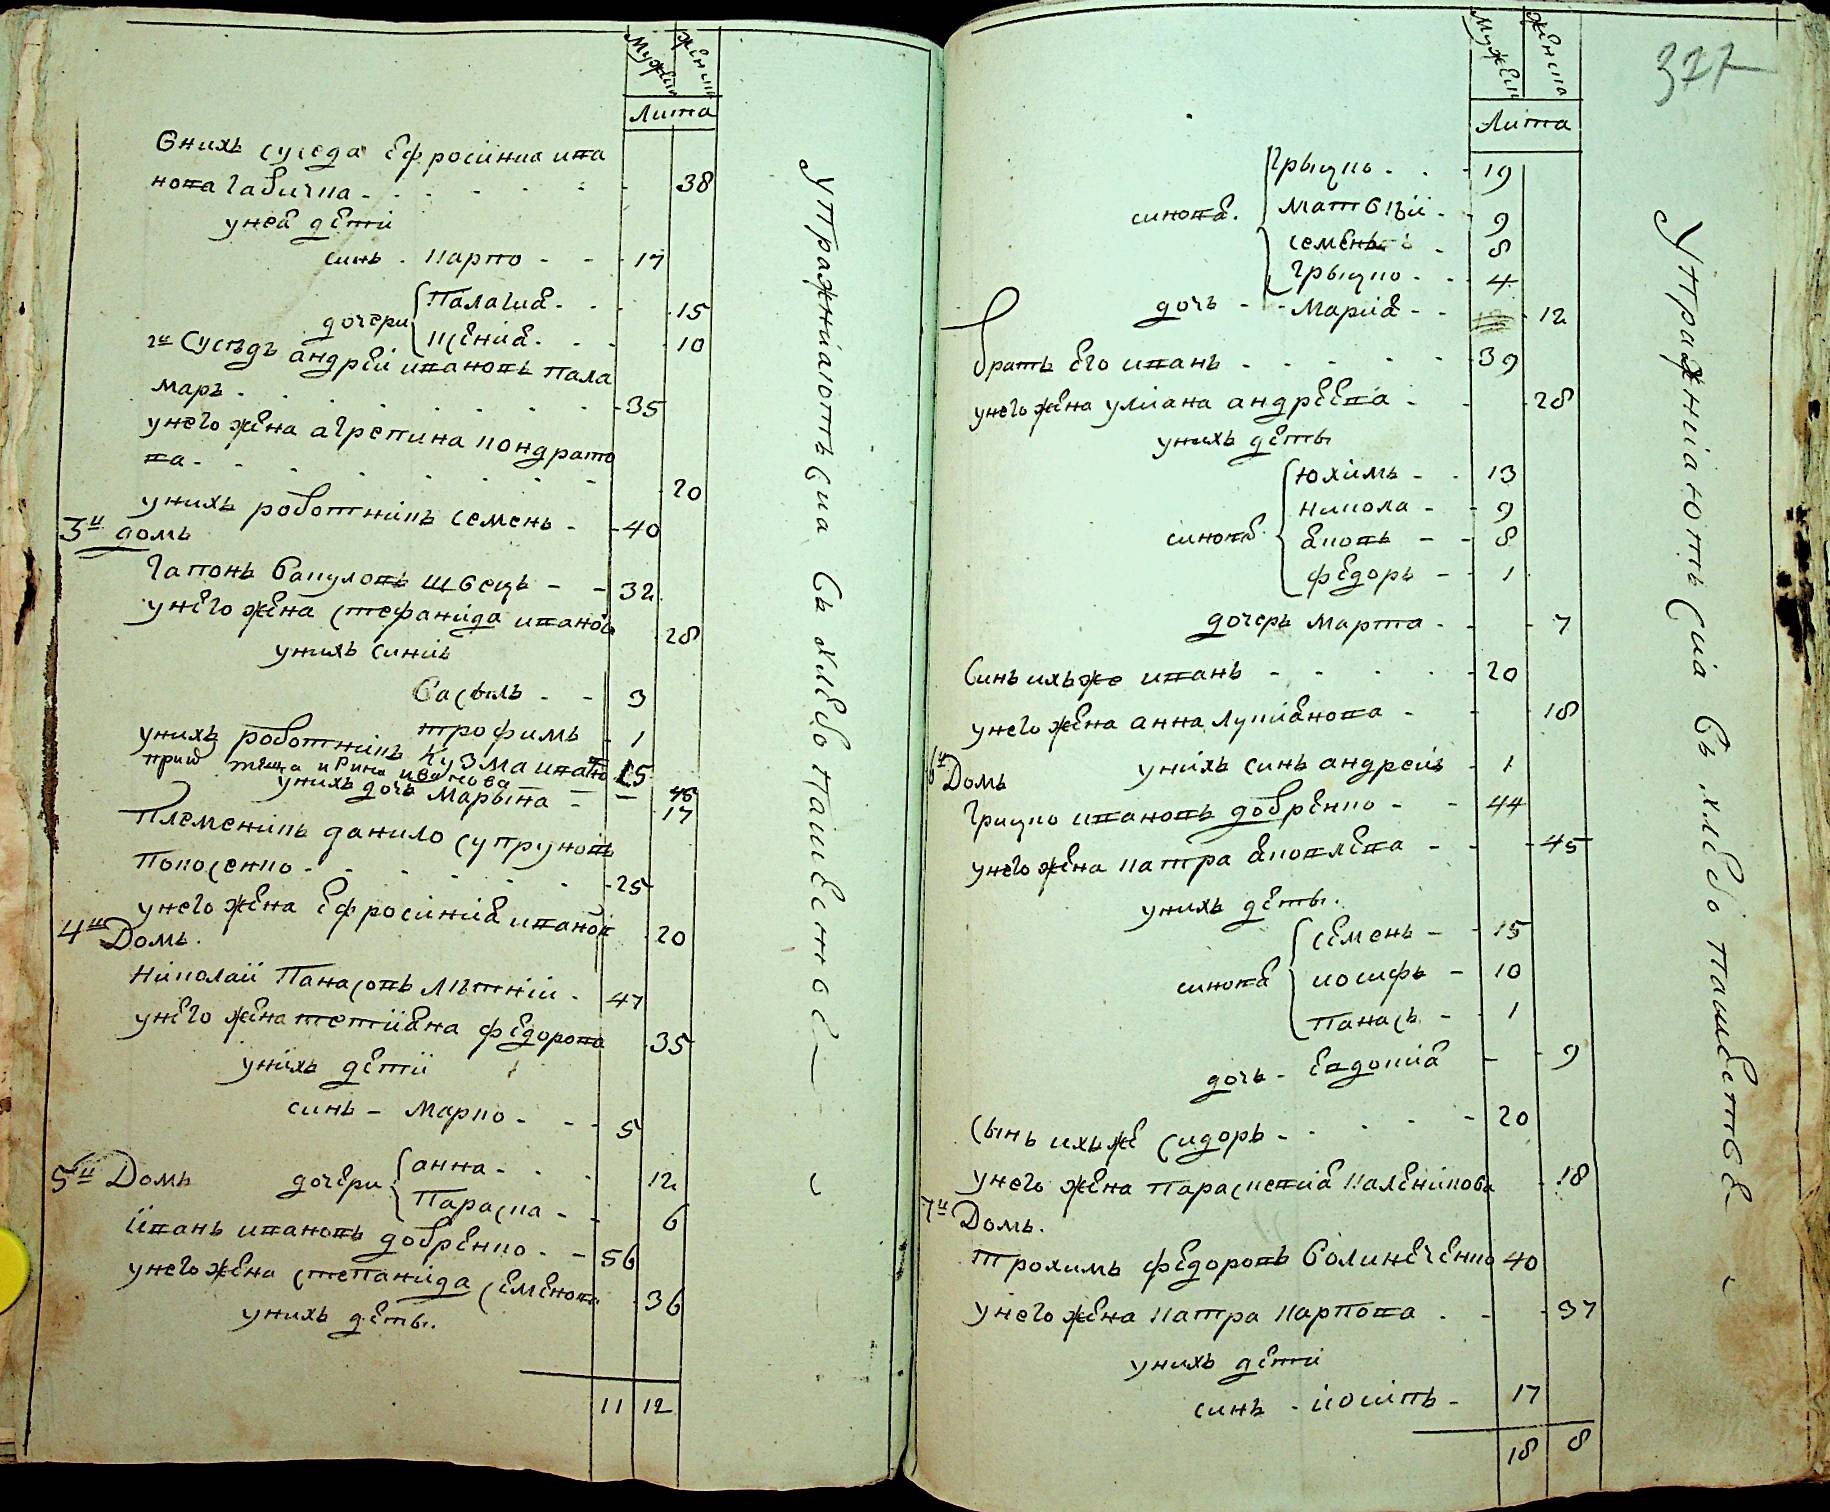 Мужеи женши
Лита
Внихъ суседа Ефросиниа ива
нова Габична - 38
унеа дети
синъ - Карпо - 17
дочери Палагиа - 15
Щениа - 10
2й Суседъ андреи ивановъ пала
маръ - 35
унего жена агрепина кондрато
ва - 20
унихъ роботникъ семенъ - 40
3й домъ
Гапонъ Вакуловъ швецъ - 32
унего жена стефанида иванова 28
унихъ синиъ
Василь - 3
трофимъ - 1
унихъ роботникъ Кузма ивано 15
теща ирина иванова 45
унихъ дочь Марына - 17
Племеникъ данило супруновъ
Покосенко - 25
унего жена Ефросиниа иванов 20
4й Домъ.
Николаи Панасовъ Лѣтнии - 47
унего жена тетиана федорова 35
унихъ детии
синъ - Марко - 5
5й Домъ
дочери анна - 12
Параска - 6
Иванъ ивановъ добренко - 56
унего жена степанида семенова 36
унихъ деты.
11 12
Упражниаютсиа въ хлебопашестве
327
Мужеи женша
Лита
синова Грыцко - 19
Матвѣи - 9
семенъ - 8
Грыцко - 4
дочь - Мариа - 12
братъ Его иванъ - 39
унего жена улиана андреева - 28
унихъ деты
синова юхимъ - 13
никола - 9
Ековъ - 8
федоръ - 1
дочеръ Марта - 7
Синъ ихъже иванъ - 20
унего жена анна лукианова - 18
унихъ синъ андреи - 1
6й Домъ
Грицко ивановъ добренко - 44
унего жена катраЕковлева - 45
унихъ деты.
синова семенъ - 15
иосифъ - 10
панасъ - 1
дочь - Евдокиа - 9
Сынъ ихъже сидоръ - 20
унего жена параскевиа каленикова 18
7й Домъ.
трохимъ федоровъ Волинеченко 40
унего жена катра карпова - 37
унихъ дети
синъ - иосипъ - 17
18 8
Упражниаютсиа въ хлебопашестве